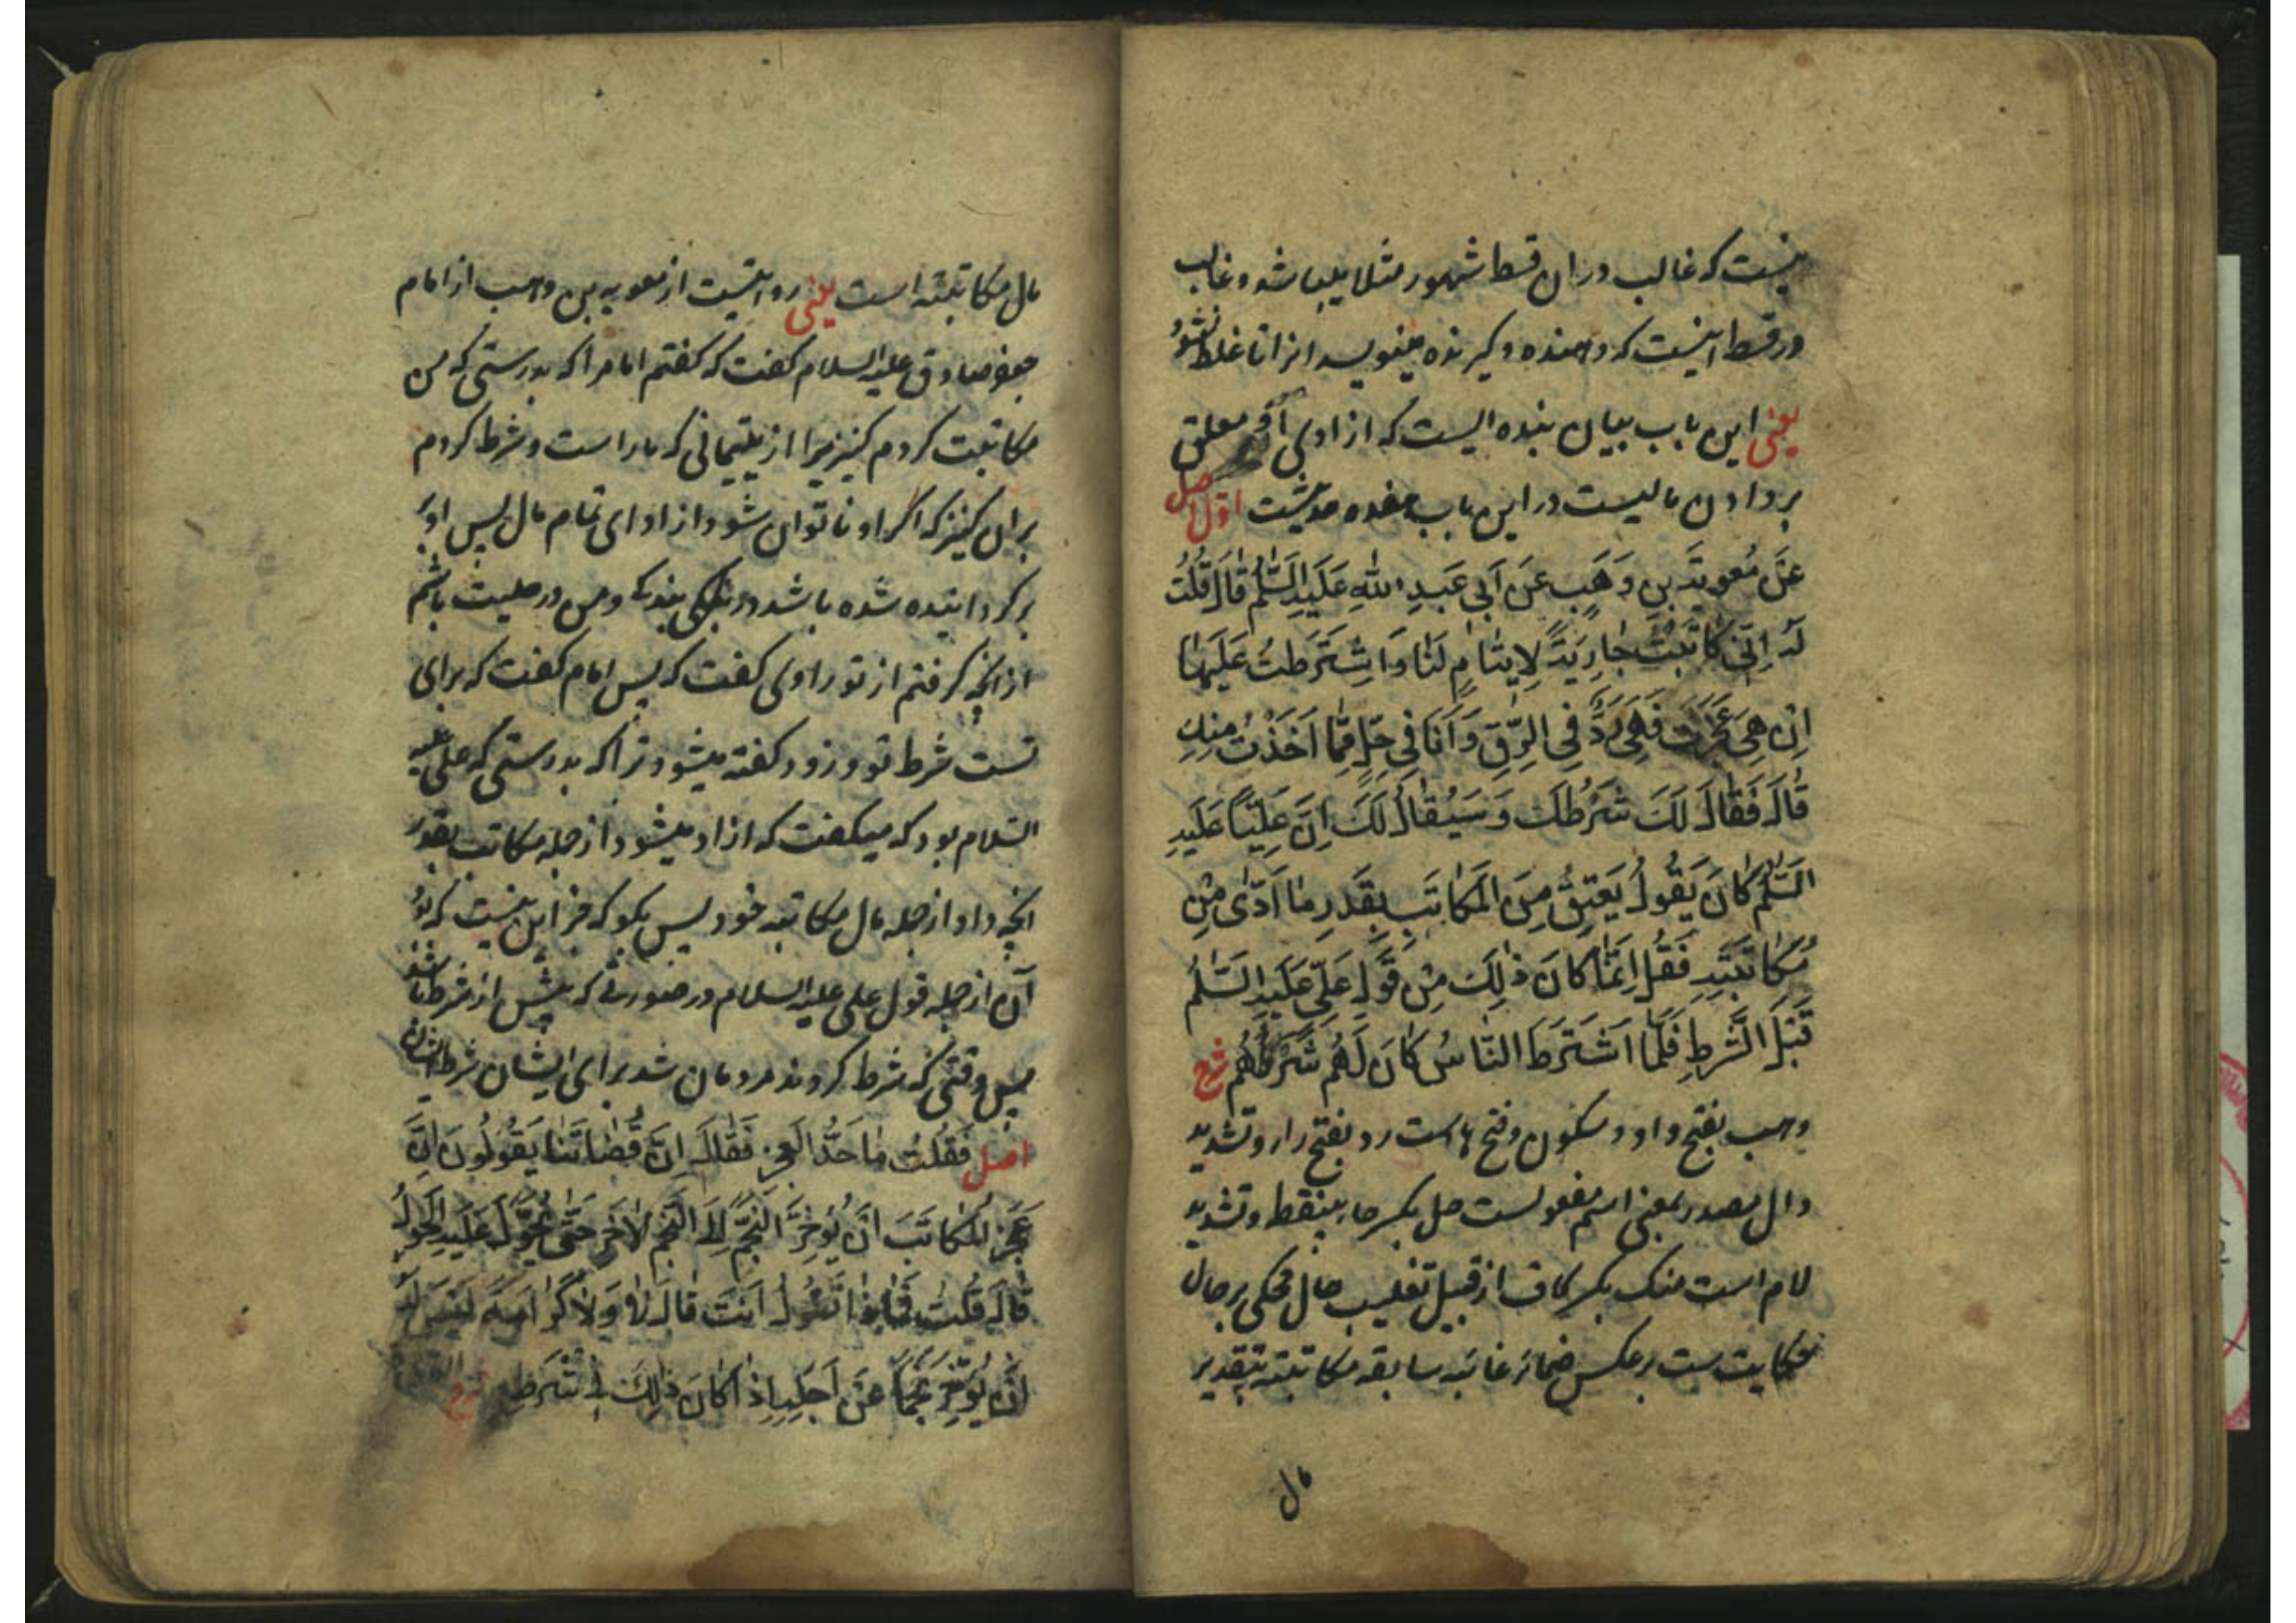 نیست که غالب در ان قسط شهور مثلا میباشد و غالب
در قسط اینست که دهنده و گیرنده مینویسد انرا تا غلط نشود
یعنی این باب بیان بنده الیست که ازادی او معلق
بر دادن مالیست در این باب هفده حدیثست اول اصل
عَنْ مُعویَةَ بنِ وَهَبٍ عَنْ اَبی عَبدِ اللهِ عَلَیهِ السَّلٰمُ قالَ قُلتُ
لَهُ اِنّی کاتَبتُ جارِیَةً لِایتامٍ لَنا وَاشتَرَطتُ عَلَیها
اِنْ هِیَ عَجَزَت فَهِیَ رَدٌّ فِی الرِّقِّ وَ اَنَا فی حِلٍّ مِمّا اَخَذتُ مِنکِ
قالَ فَقالَ لَکَ شَرطُکَ وَ سَیُقالُ لَکَ اِنَّ عَلِیًّا عَلَیهِ
السَّلٰمُ کانَ یَقُولُ یَعتِقُ مِنَ المُکاتَبِ بِقَدرِ ما اَدّی مِنْ
مُکاتَبَتِهِ فَقُل اِنَّما کانَ ذٰلِکَ مِنْ قَولِ عَلیٍّ عَلَیهِ السَّلٰمُ
قَبلَ الشَّرطِ فَلَمّا اشتَرَطَ النّاسُ کانَ لَهُم شَرطُهُم شرح
وهب بفتح واو و سکون و فتح ها است رد بفتح را و تشدید
دال مصدر بمعنی اسم مفعولست حل بکسر حا بینقطه و تشدید
لام است منک بکسر کاف از قبیل تغلیب حال محکی بر حال
حکایت ست بر عکس ضمائر غائبه سابقه مکاتبته بتقدیر
مال
مال مکاتبته است یعنی روایتست از معویه بن وهب از امام
جعفر صادق علیه السلام گفت که گفتم امام را که بدرستی که من
مکاتبت کردم کنیزیرا از یتیمانی که ما راست و شرط کردم
بر ان کنیز که اگر او ناتوان شود از ادای تمام مال پس او
برگردانیده شده باشد در بندگی و من در حلیت باشم
از انچه گرفتم از تو راوی گفت که پس امام گفت که برای
تست شرط تو و زود گفته میشود ترا که بدرستی که علی علیه
السلام بود که میگفت که ازاد میشود از جمله مکاتب بقدر
انچه داد از جمله مال مکاتبه خود پس بگو که جز این نیست که بود
آن از جمله قول علی علیه السلام در صورتی که پیش از شرط باشد
پس وقتی که شرط کردند مردمان شد برای ایشان شرط ایشان
اصل فَقُلتُ ما حَدُّ العَجزِ فَقالَ اِنَّ قُضاتَنا یَقُولُونَ اِنَّ
عَجزَ المُکاتَبَ اَنْ یُؤَخِّرَ النَّجمَ اِلَی النَّجمِ الاٰخَرِ حَتّی یَحُولَ عَلَیهِ الحَولُ
قالَ قُلتُ فَماذا تَقُولُ اَنتَ قالَ لا وَ لا کَرامَةَ لَیسَ لَهُ
اَنْ یُؤَخِّرَ نَجماً عَنْ اَجَلِهِ اِذا کانَ ذٰلِکَ فی شَرطِهِ شرح